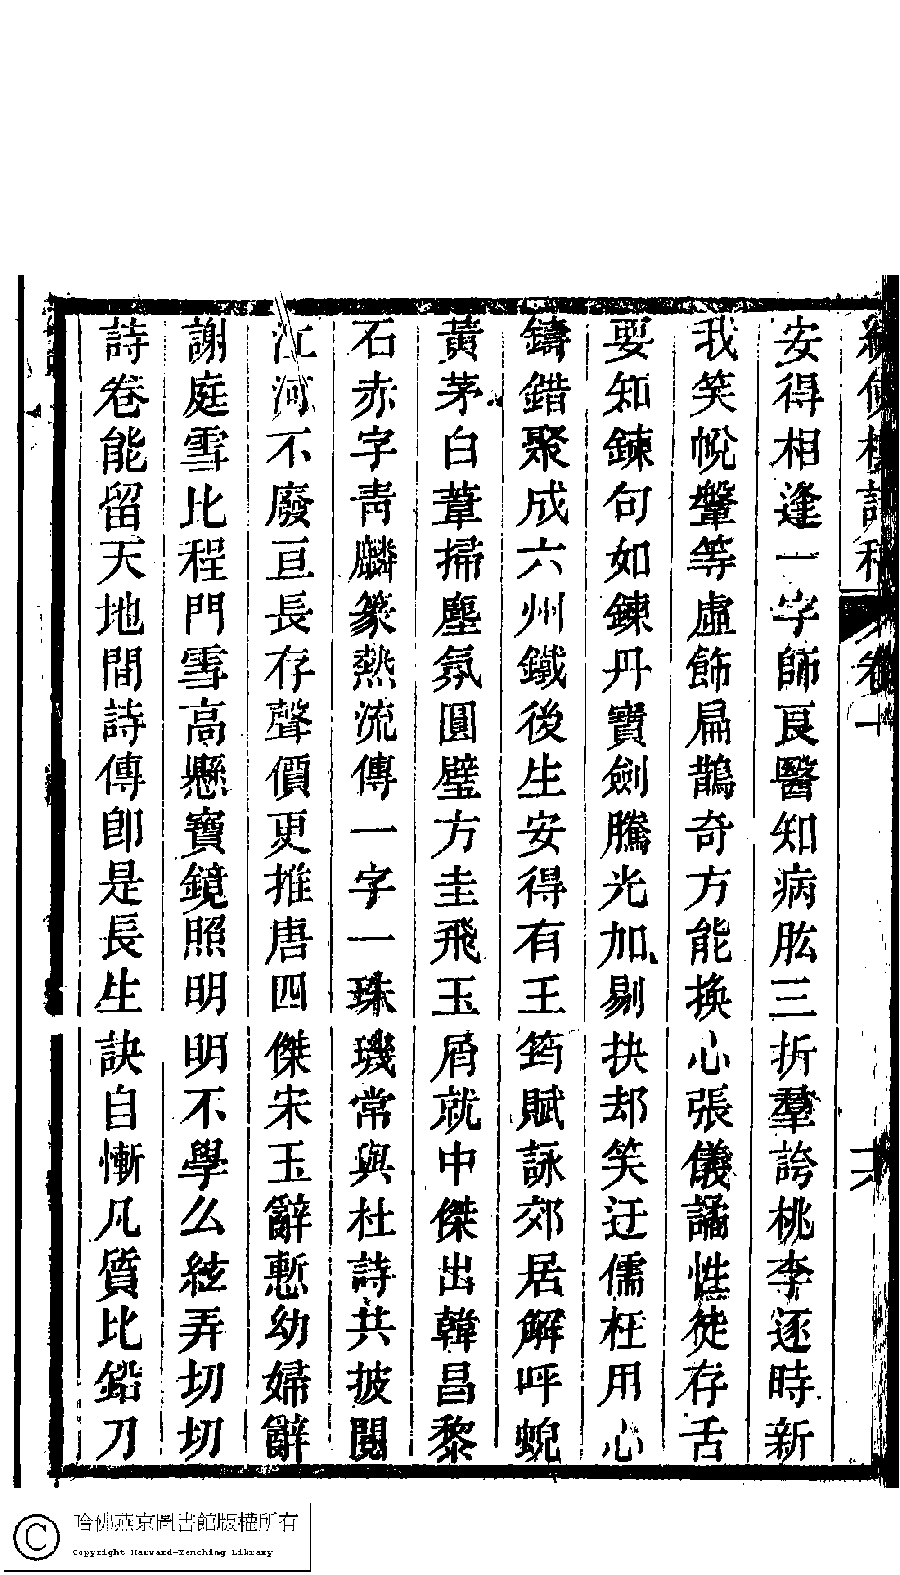 安得相逢一字師良醫知病肱三折羣誇桃李逐時新
我笑帨鞶等虛飾扁鵲奇方能換心張儀譎性徒存舌
要知鍊句如鍊丹寶劍騰光加剔抉却笑迂儒枉用心
鑄錯聚成六州鐵後生安得有王筠賦詠郊居解呼蜺
黃茅白葦掃塵氛圓璧方圭飛玉屑就中傑出韓昌黎
石赤字靑麟篆熱流傳一字一珠璣常與杜詩共披閱
江河不廢亘長存聲價更推唐四傑宋玉辭慙幼婦辭
謝庭雪比程門雪高懸寶鏡照明明不學么絃弄切切
詩卷能留天地間詩傳卽是長生訣自慚凡質比鉛刀
樓詩稿
卷十
六
哈佛燕京圖書館版權所有
Copyright Harvard-Yenching Library